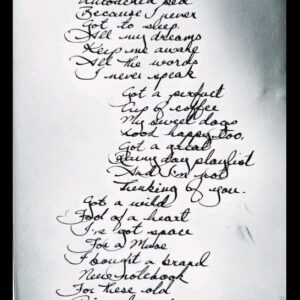 Untouched bed
Because I never
Got to sleep
All my dreams
Keep me awake
All the words
I never speak
Got a perfect
Cup of coffee
My sweet dogs
Look happy, too,
Got a great
Rainy day playlist
And I'm just
Thinking of you.
Got a wild
Fool of a heart
I've got space
For a Muse
I bought a brand
New notebook
For these old